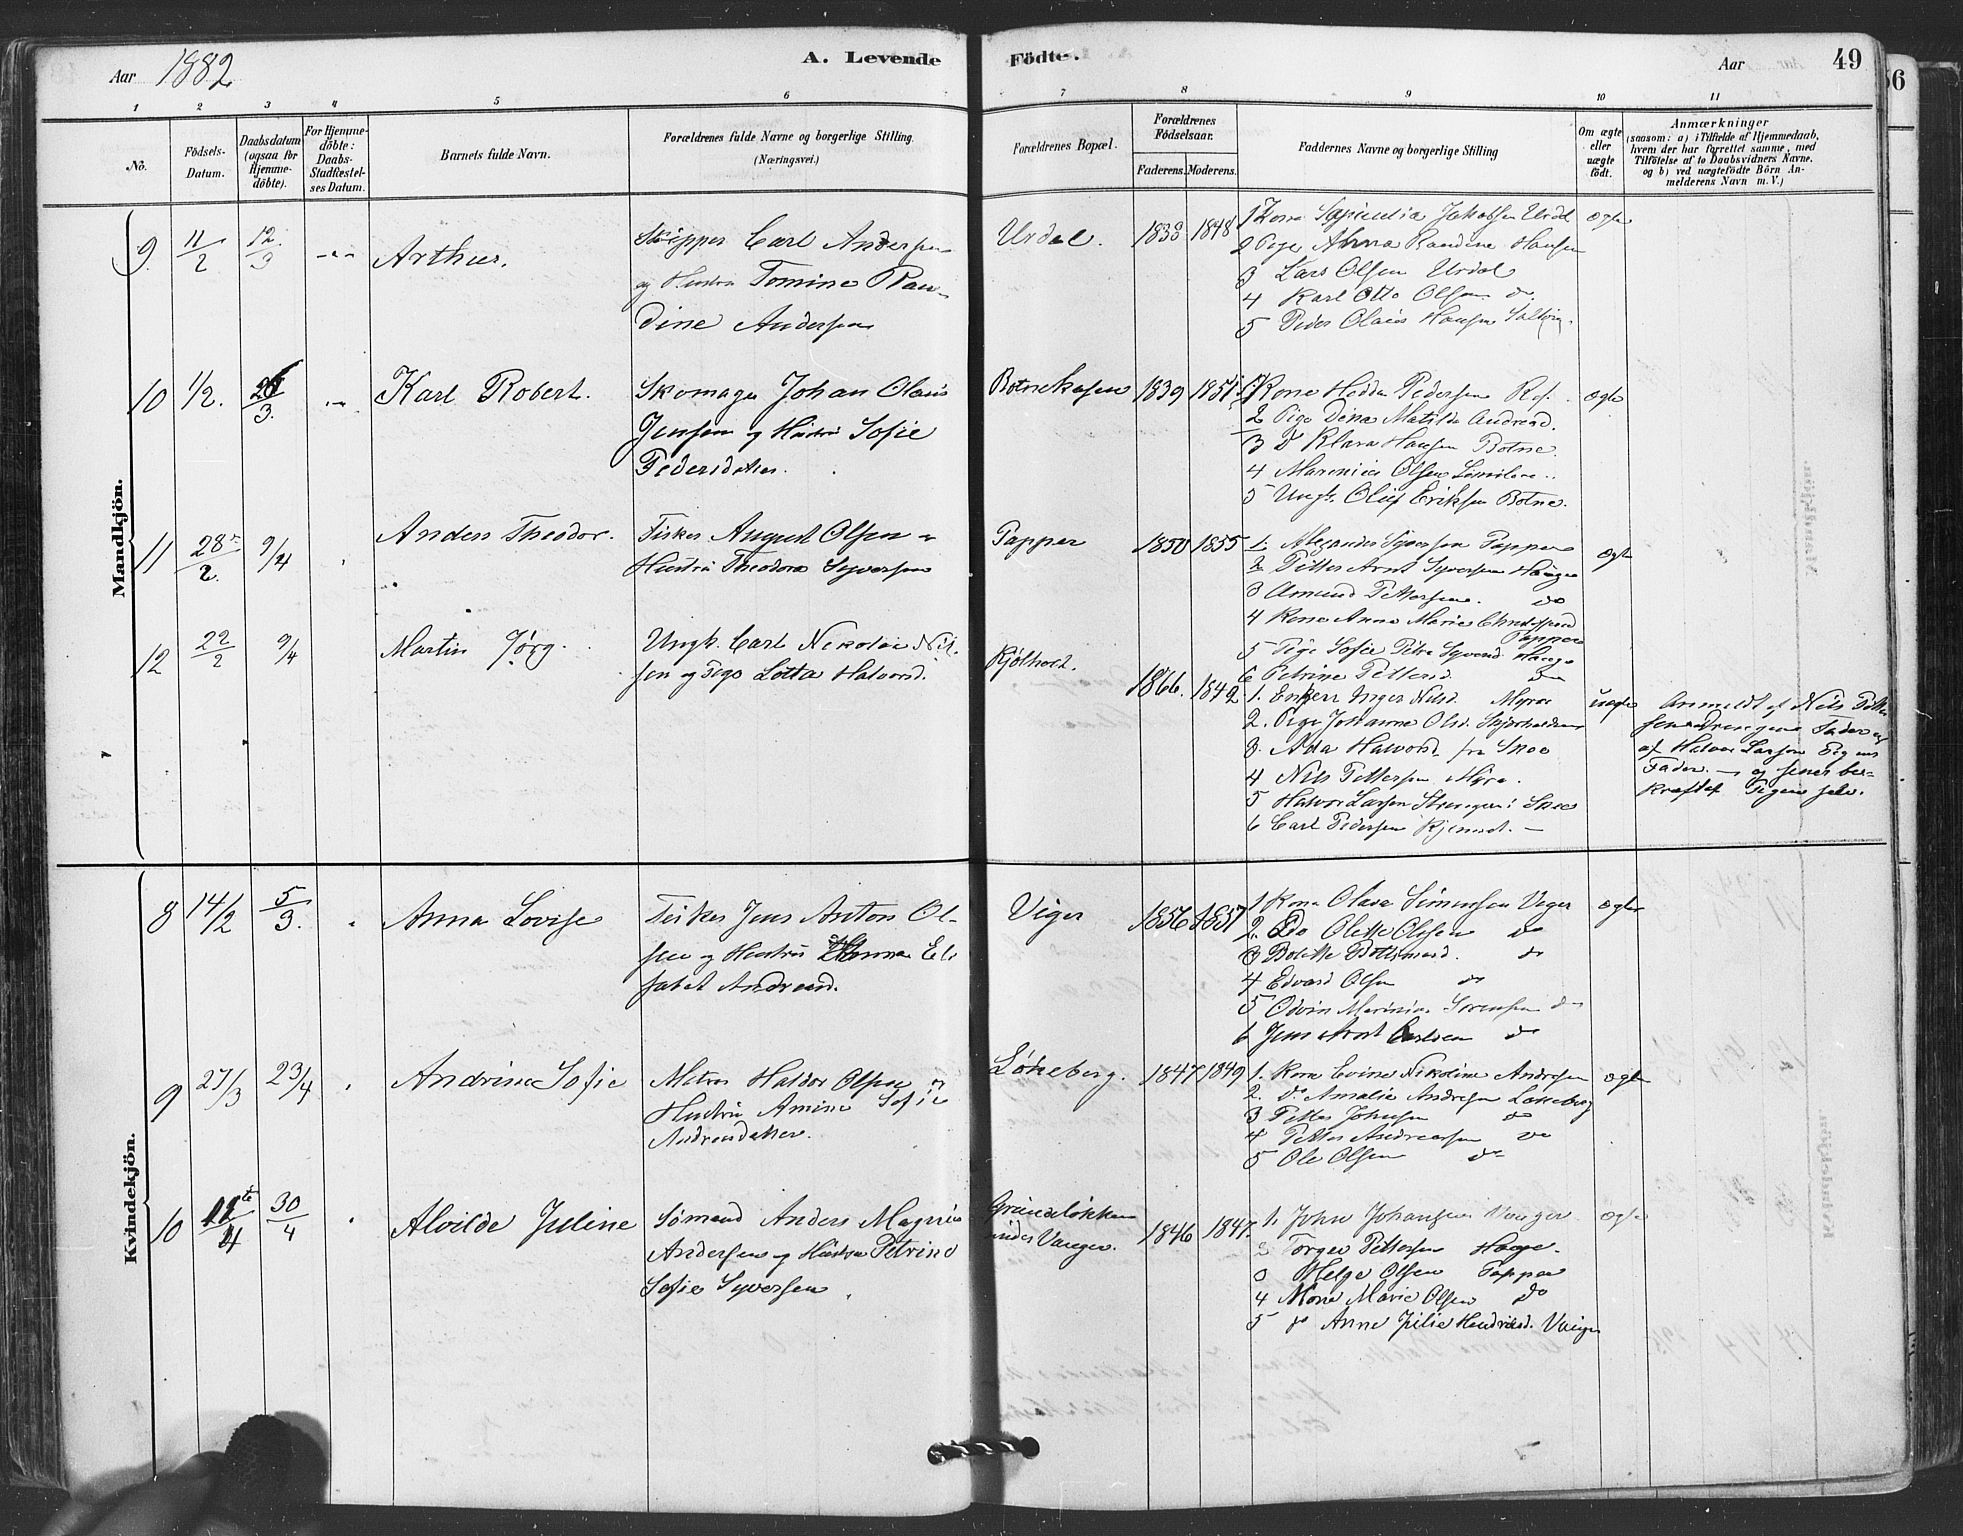 Aar 1882
A. Levende
Födte.
Aar
49
1 2 3 4 5 6 7 8 9 10 11
No.
Födsels-Datum.
Daabsdatum (ogsaa for Hjemme-döbte).
For Hjemme-döbte: Daabs-Stadfæstel-ses Datum.
Barnets fulde Navn.
Forældrenes fulde Navne og borgerlige Stilling. (Næringsvei.)
Forældrenes Bopæl.
Forældrenes Födselsaar.
Faderens. Moderens.
Faddernes Navne og borgerlige Stilling
Om ægte eller uægte födt.
Anmærkninger
(saasom: a) i Tilfælde af Hjemmedaab,
hvem der har forrettet samme, med
Tilföielse af to Daabsvidners Navne.
og b) ved uægtefödte Börn An-
melderens Navn m. V.)
Mandkjön.
9 11/2 12/3 Arthur.
Skipper Carl Andersen
og Hustru Tomine Ran-
dine Andersen
Urdal. 1838 1848
1 Kone Jakobsen Urdal
2 Pige Anna Randine Hansen
3 Lars Olsen Urdal
4 Karl Otto Olsen do.
5 Peder Olaus Hansen
ægte
10 1/2. 26/3. Karl Robert.
Skomager Johan Olaus
Jensen og Hustru Sofie
Pedersdatter.
Botnehagen 1839 1851
1 Kone Hedda Pedersen
2 Pige Dina Matilde Andreasd.
3 D Klara Hansen Botne.
4 Marenius Olsen
5 Ungk. Oluf Eriksen Botne.
ægte
11 28/2. 9/4 Anders Theodor.
Fisker August Olsen
Hustru Theodora Syversen
Papper 1850 1855
1. Alexander Syversen Papper
2 Petter Arnt Syversen Hauge
3 Amund Pettersen. do
4 Kone Anna Marie Papper
5 Pige Sofie Petra Syversd. Hauge
6 Petrine Pettersd. do
ægte
12 22/2 9/4 Martin Jørg.
Ungk. Carl Nikolai Nil-
sen og Pige Lotta Halvorsd.
Kjølholt. 1866. 1842
1. Enke Inger Nilsd. Myra
2. Pige Johanne Olsd.
3. Ada Halvorsd. fra
4 Nils Pettersen Myra.
5 Halvor Larsen
6 Carl Pedersen
uægte
Anmeldt af Nils Petter
sen Drengens Fader og
af Halvor Larsen Pigens
Fader. — og senere be-
kræftet Pigens selv.
Kvindekjön.
8 14/2 5/3. Anna Lovise
Fisker Jens Anton Ol-
sen og Hustru Hanna Eli
sabet Andreasd.
Viger 1856 1857
1 Kone Olava Simensen Viger
2. Do Olette Olsen do
3 Bolette do
4 Edvard Olsen do
5 Odvin Marinius Sorensen do
6 Jens Arnt Carlsen do
ægte
9 27/3 23/4 Andrine Sofie
Matros Haldor Olsen og
Hustru Amine Sofie
Andreasdatter.
Løkeberg. 1847 1849
1. Kone Evine Nikoline Andresen
2. do Amalie Andresen Løkeberg
3 Petter Johnsen do
4 Petter Andreassen do
5 Ole Olsen do
ægte
10 11/4 30/4 Alvilde Juline
Sømand Anders Magnus
Andersen og Hustru Petrine
Sofie Syversen
Grindeløkken
under Vauger. 1846 1847.
1. John Johansen Vauger
2 Torger Pettersen Hauge.
3 Helge Olsen Papper
4 Kone Marie Olsen do
5 do Anne Julie Vauger
ægte